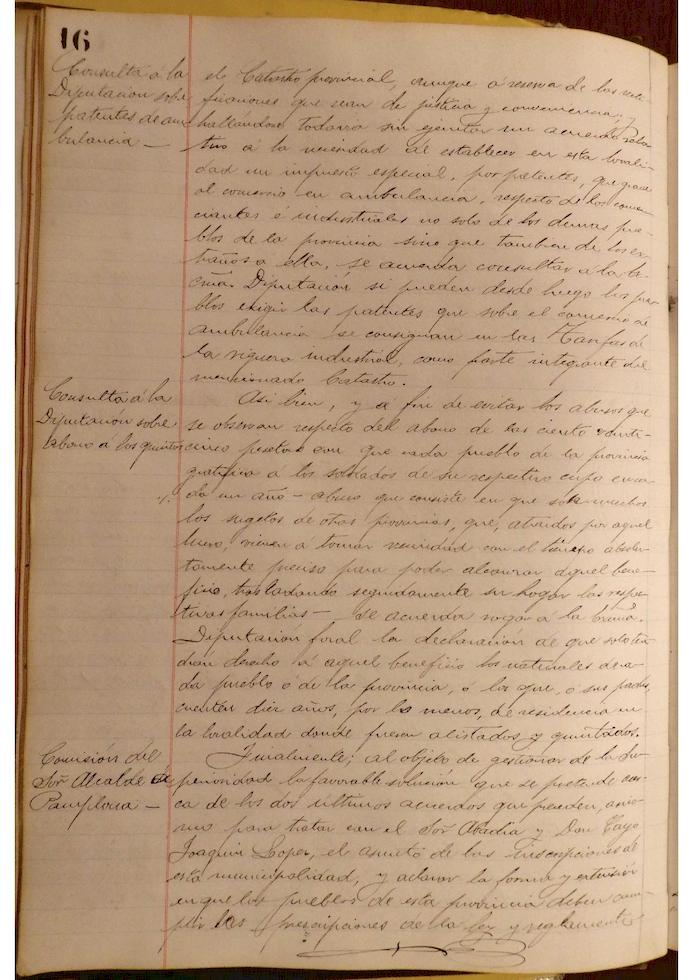 16
Consulta á la
Diputación sobre
patentes de am
bulancia —
el Catastro provincial, aunque á reserva de las recti
ficaciones que sean de justicia y conveniencia, y
hallándose todavia sin ejecutar un acuerdo rela
tivo á la necesidad de establecer en esta locali-
dad un impuesto especial, por patentes, que grave
al comercio en ambulancia, respecto de los comer-
ciantes é industriales no solo de los demas pue-
blos de la provincia sino que tambien de los ex-
traños a ella, se acuerda consultar a la Ex-
cma. Diputación si pueden desde luego los pue
blos exigir las patentes que sobre el comercio de
ambulancia se consignan en las Tarifas de
la riqueza industrial, como parte integrante del
mencionado Catastro.
Consulta á la
Diputación sobre
abono á los quintos
Asi bien, y á fin de evitar los abusos que
se observan respecto del abono de las ciento veinti-
cinco pesetas con que cada pueblo de la provincia
gratifica á los soldados de su respectivo cupo en ca-
da un año — abuso que consiste en que son muchos
los sugetos de otras provincias, que, atraidos por aquel
lucro, vienen á tomar vecindad con el tiempo absolu-
tamente preciso para poder alcanzar aquel bene-
ficio, trasladando seguidamente su hogar las respec-
tivas familias — se acuerda rogar a la Excma.
Diputación foral la declaración de que solo ten-
drán derecho á aquel beneficio los naturales de ca-
da pueblo ó de la provincia, ó los que, ó sus padres,
cuenten diez años, por lo menos, de residencia en
la localidad donde fueren alistados y quintados.
Comisión del
Sor. Alcalde á
Pamplona —
Finalmente; al objeto de gestionar de la Su-
perioridad la favorable solución que se pretende cer-
ca de los dos ultimos acuerdos que preceden, asi co-
mo para tratar con el Sor. Abadia y Don Cayo
Joaquin Lopez, el asunto de las inscripciones de
esta municipalidad, y aclarar la forma y extensión
en que los pueblos de esta provincia deben cum-
plir las prescripciones de la ley y reglamento